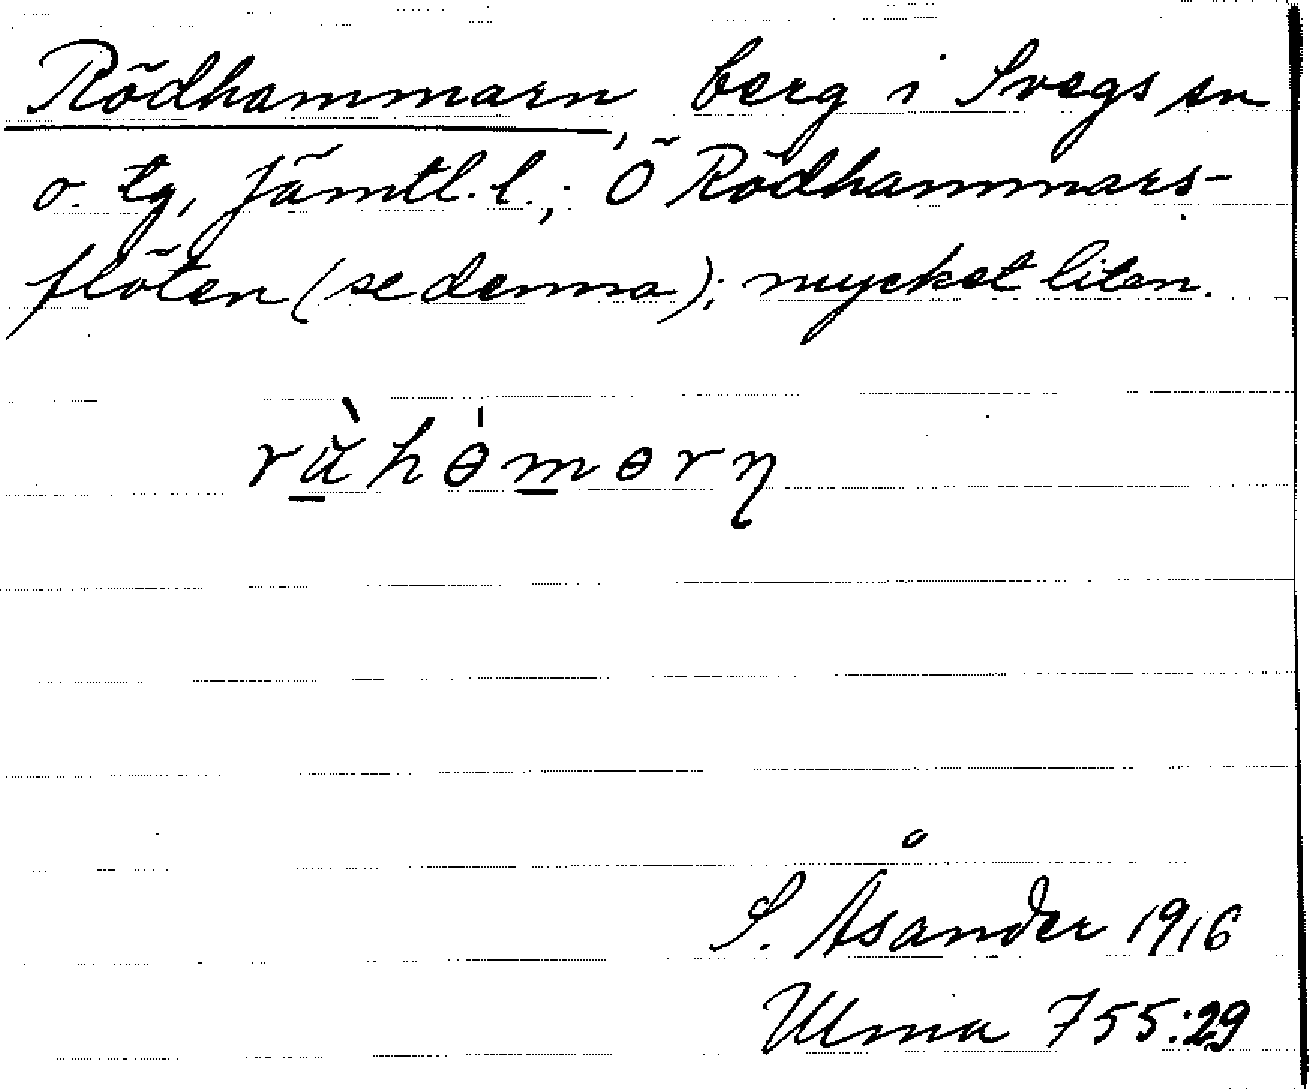 Rödhammarn, berg i Svegs sn
o. tg, Jämtl. l.; Ö Rödhammars-
flöten (se denna); mycket liten.
rằhɵ̇mɵrn̥
S. Åsander 1916
Ulma 755:29